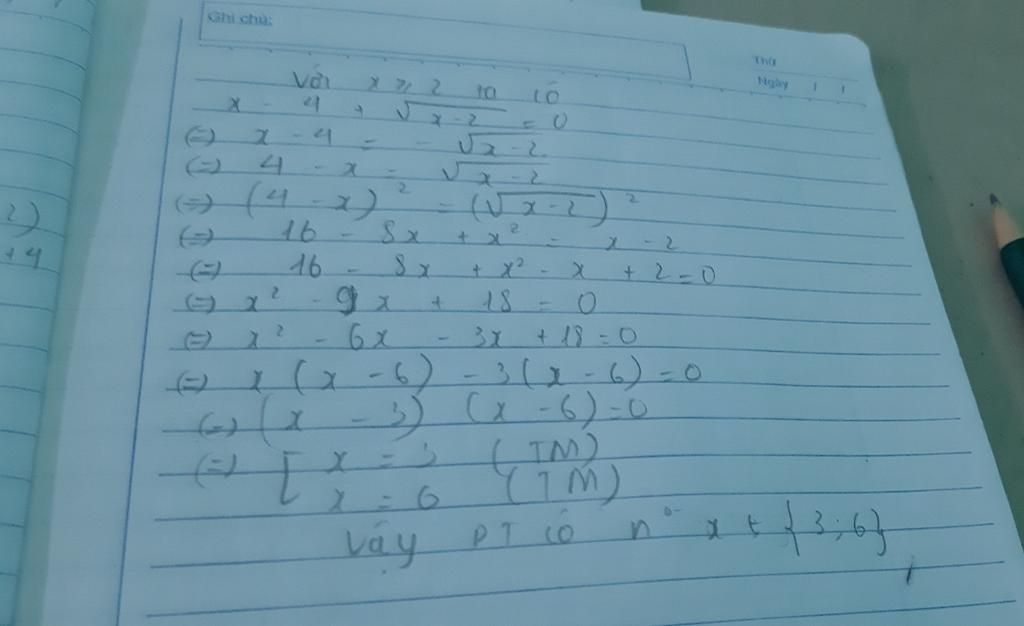 Ghi chú:
Thứ
Ngày / /
Với x ≥ 2 ta có
x - 4 + √x-2 = 0
(=) x - 4 = - √x-2
(=) 4 - x = √x-2
(=) (4 - x)² = (√x-2)²
(=) 16 - 8x + x² = x - 2
(=) 16 - 8x + x² - x + 2 = 0
(=) x² - 9x + 18 = 0
(=) x² - 6x - 3x + 18 = 0
(=) x (x - 6) - 3(x - 6) = 0
(=) (x - 3) (x - 6) = 0
(=) [ x = 3 (TM)
x = 6 (TM)
Vậy PT có n⁰ x ∈ {3;6}
2)
+4